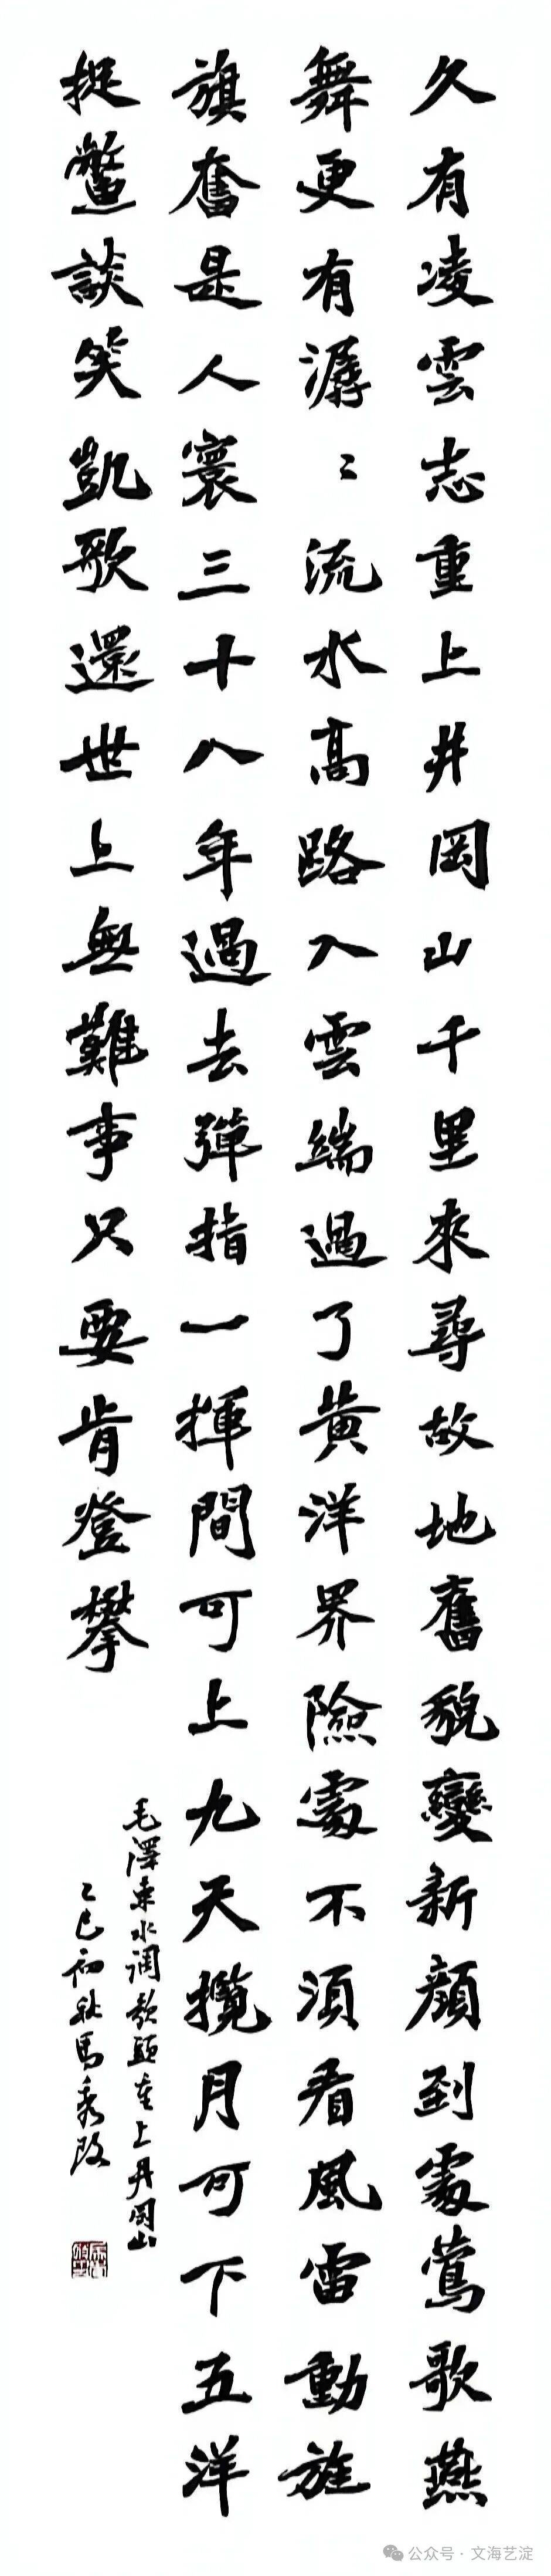 久有凌雲志重上井岡山千里來尋故地舊貌變新顏到處鶯歌燕
舞更有潺〻流水高路入雲端過了黄洋界險處不須看風雷動旌
旗奮是人寰三十八年過去彈指一揮間可上九天攬月可下五洋
捉鱉談笑凱歌還世上無難事只要肯登攀
毛澤東水調歌頭重上井岡山
乙巳初秋馬秀政
公众号·文海艺淀